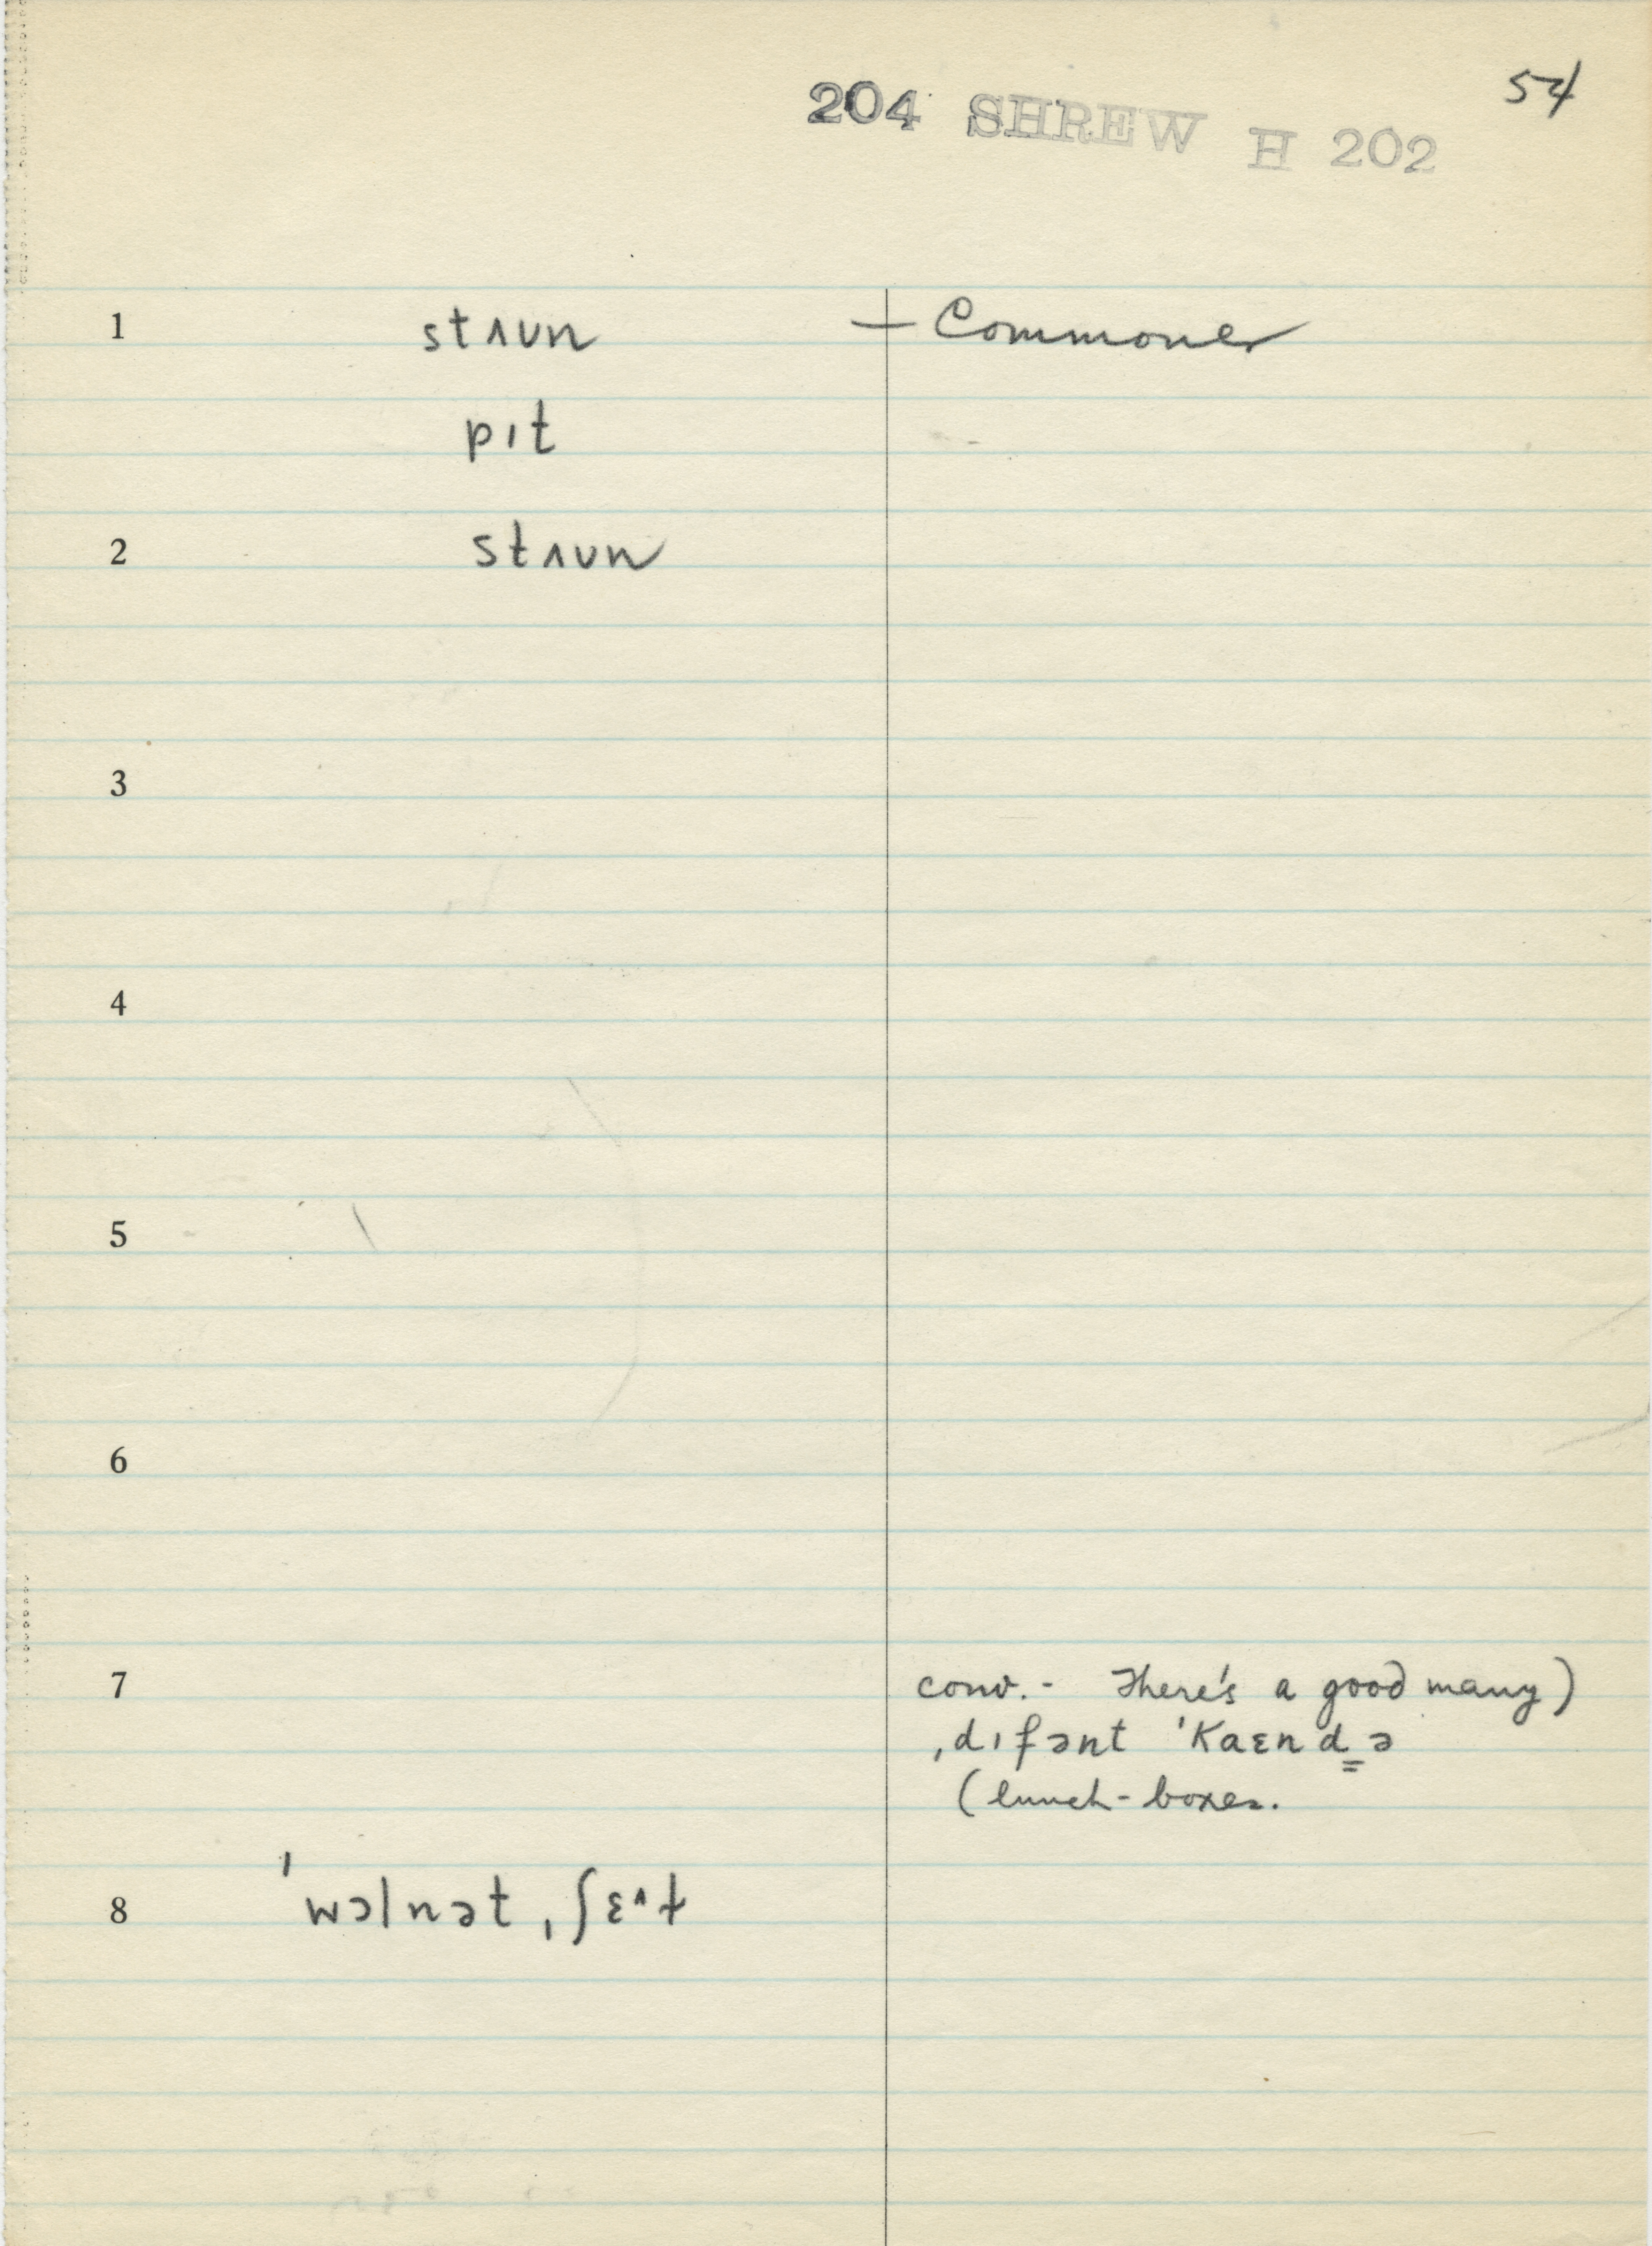 54
204 SHREW H 202
1 stʌun + Commoner
pıt
2 stʌun
3
4
5
6
7 conv. - There's a good many)
ˌdıfənt ˈkaɛnd̳ə
(lunch-boxes.
8 ˈwɔlnət ˌʃɛ^ɫ